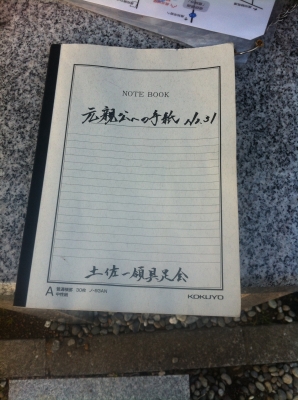 NOTE BOOK
元親公への手紙 No.31
土佐一領具足会
A 普通横罫 30枚 ノ-R5AN
KOKUYO